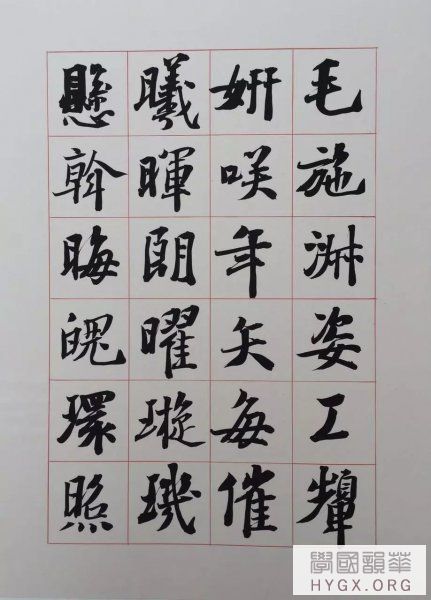 毛施淑姿工顰
妍咲年矢每催
曦暉朗曜璇璣
懸斡晦魄環照
華韻國學
HYGX.ORG